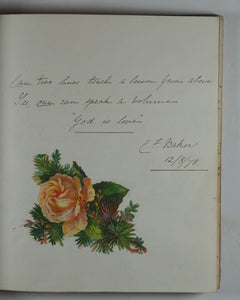 Can two lines teach a lesson from above
Yes, one can speak a volume
"God is love"
C F Baker
12/9/78